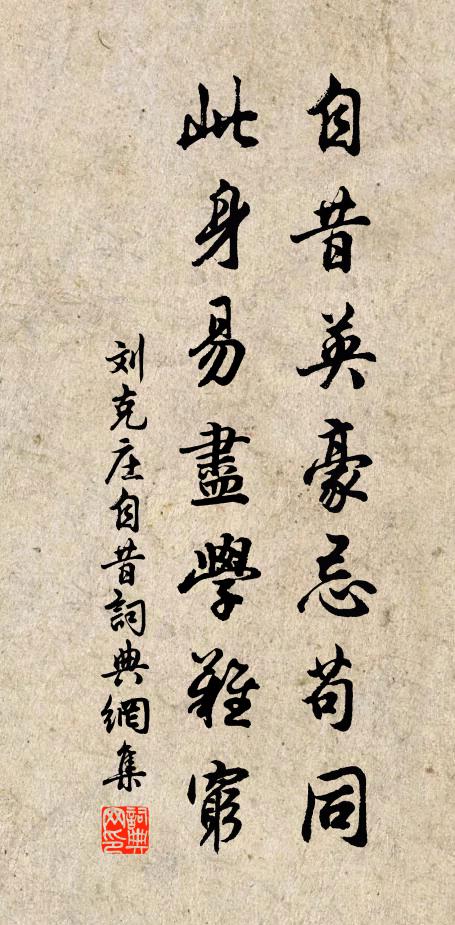 自昔英豪忌苟同
此身易盡學難窮
刘克庄自昔詞典網集
詞典網印